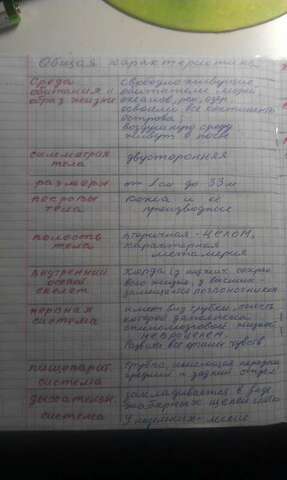 Общая характеристика
Среда
обитания и
образ жизни
свободно живущие
обитатели морей
океанов, рек, озер
освоили все континенты
острова;
воздушную среду
живут в почве
симметрия
тела
двусторонняя
размеры
от 1 см до 33 м
покровы
тела
кожа и ее
производное
полость
тела
вторичная - целом,
характерная
метамерия
внутренний
осевой
скелет
хорда
у высших
позвоночником
нервная
система
имеет вид трубки, полость
которой заполнена
спинномозговой жидкост
невроцель
Развиты все органы чувств
пищеварит.
система
Трубка, имеющая передний
средний и задний отдел
дыхательн.
система
закладывается в виде
жаберных щелей
У наземных - легкие